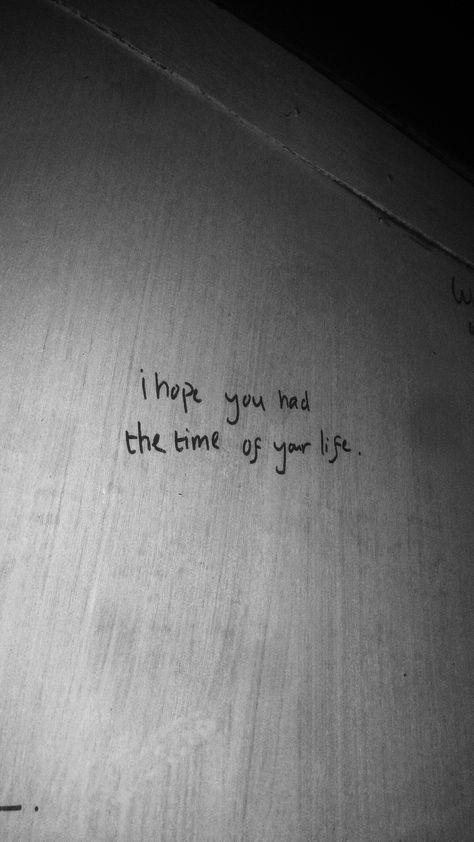 i hope you had
the time of your life.